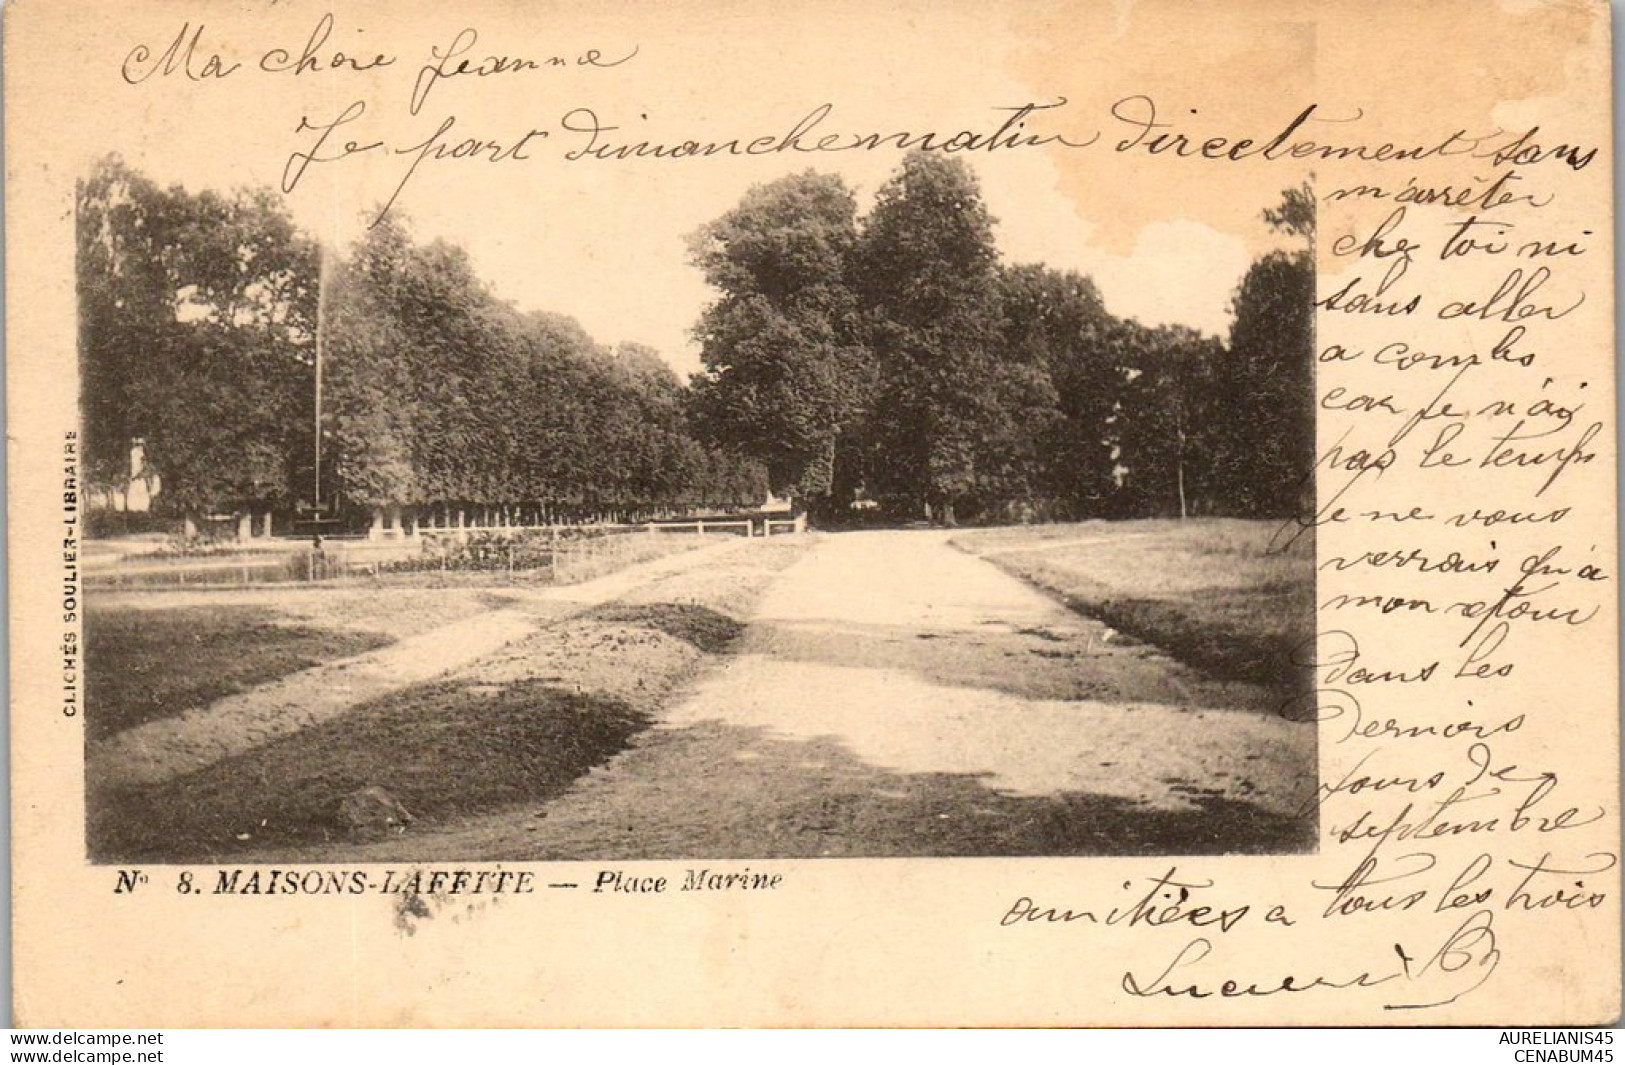 Ma chère Jeanne
Je part dimanche matin directement sans
m'arrêter
che toi ni
sans aller
a combs
car je n'ai
pas le temps
je ne vous
verrais qu'a
mon retour
dans les
derniers
jours de
septembre
amitiées a tous les trois
Lucien B
CLICHÉS SOULIER-LIBRAIRE
No 8. MAISONS-LAFFITE — Place Marine
www.delcampe.net
www.delcampe.net
AURELIANIS45
CENABUM45